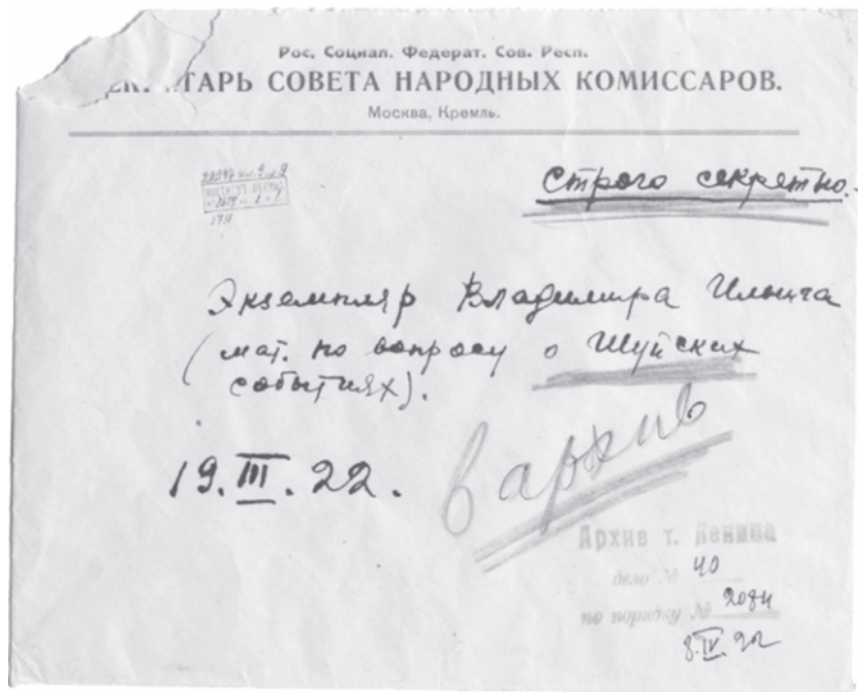 Рос. Социал. Федерат. Сов. Респ.
СЕКРЕТАРЬ СОВЕТА НАРОДНЫХ КОМИССАРОВ.
Москва, Кремль.
Строго секретно.
Экземпляр Владимира Ильича
(мат. по вопросу о Шуйских
событиях).
19.III.22.
В архив
Архив т. Ленина
дело № 40
по порядку № 2084
8.IV.22